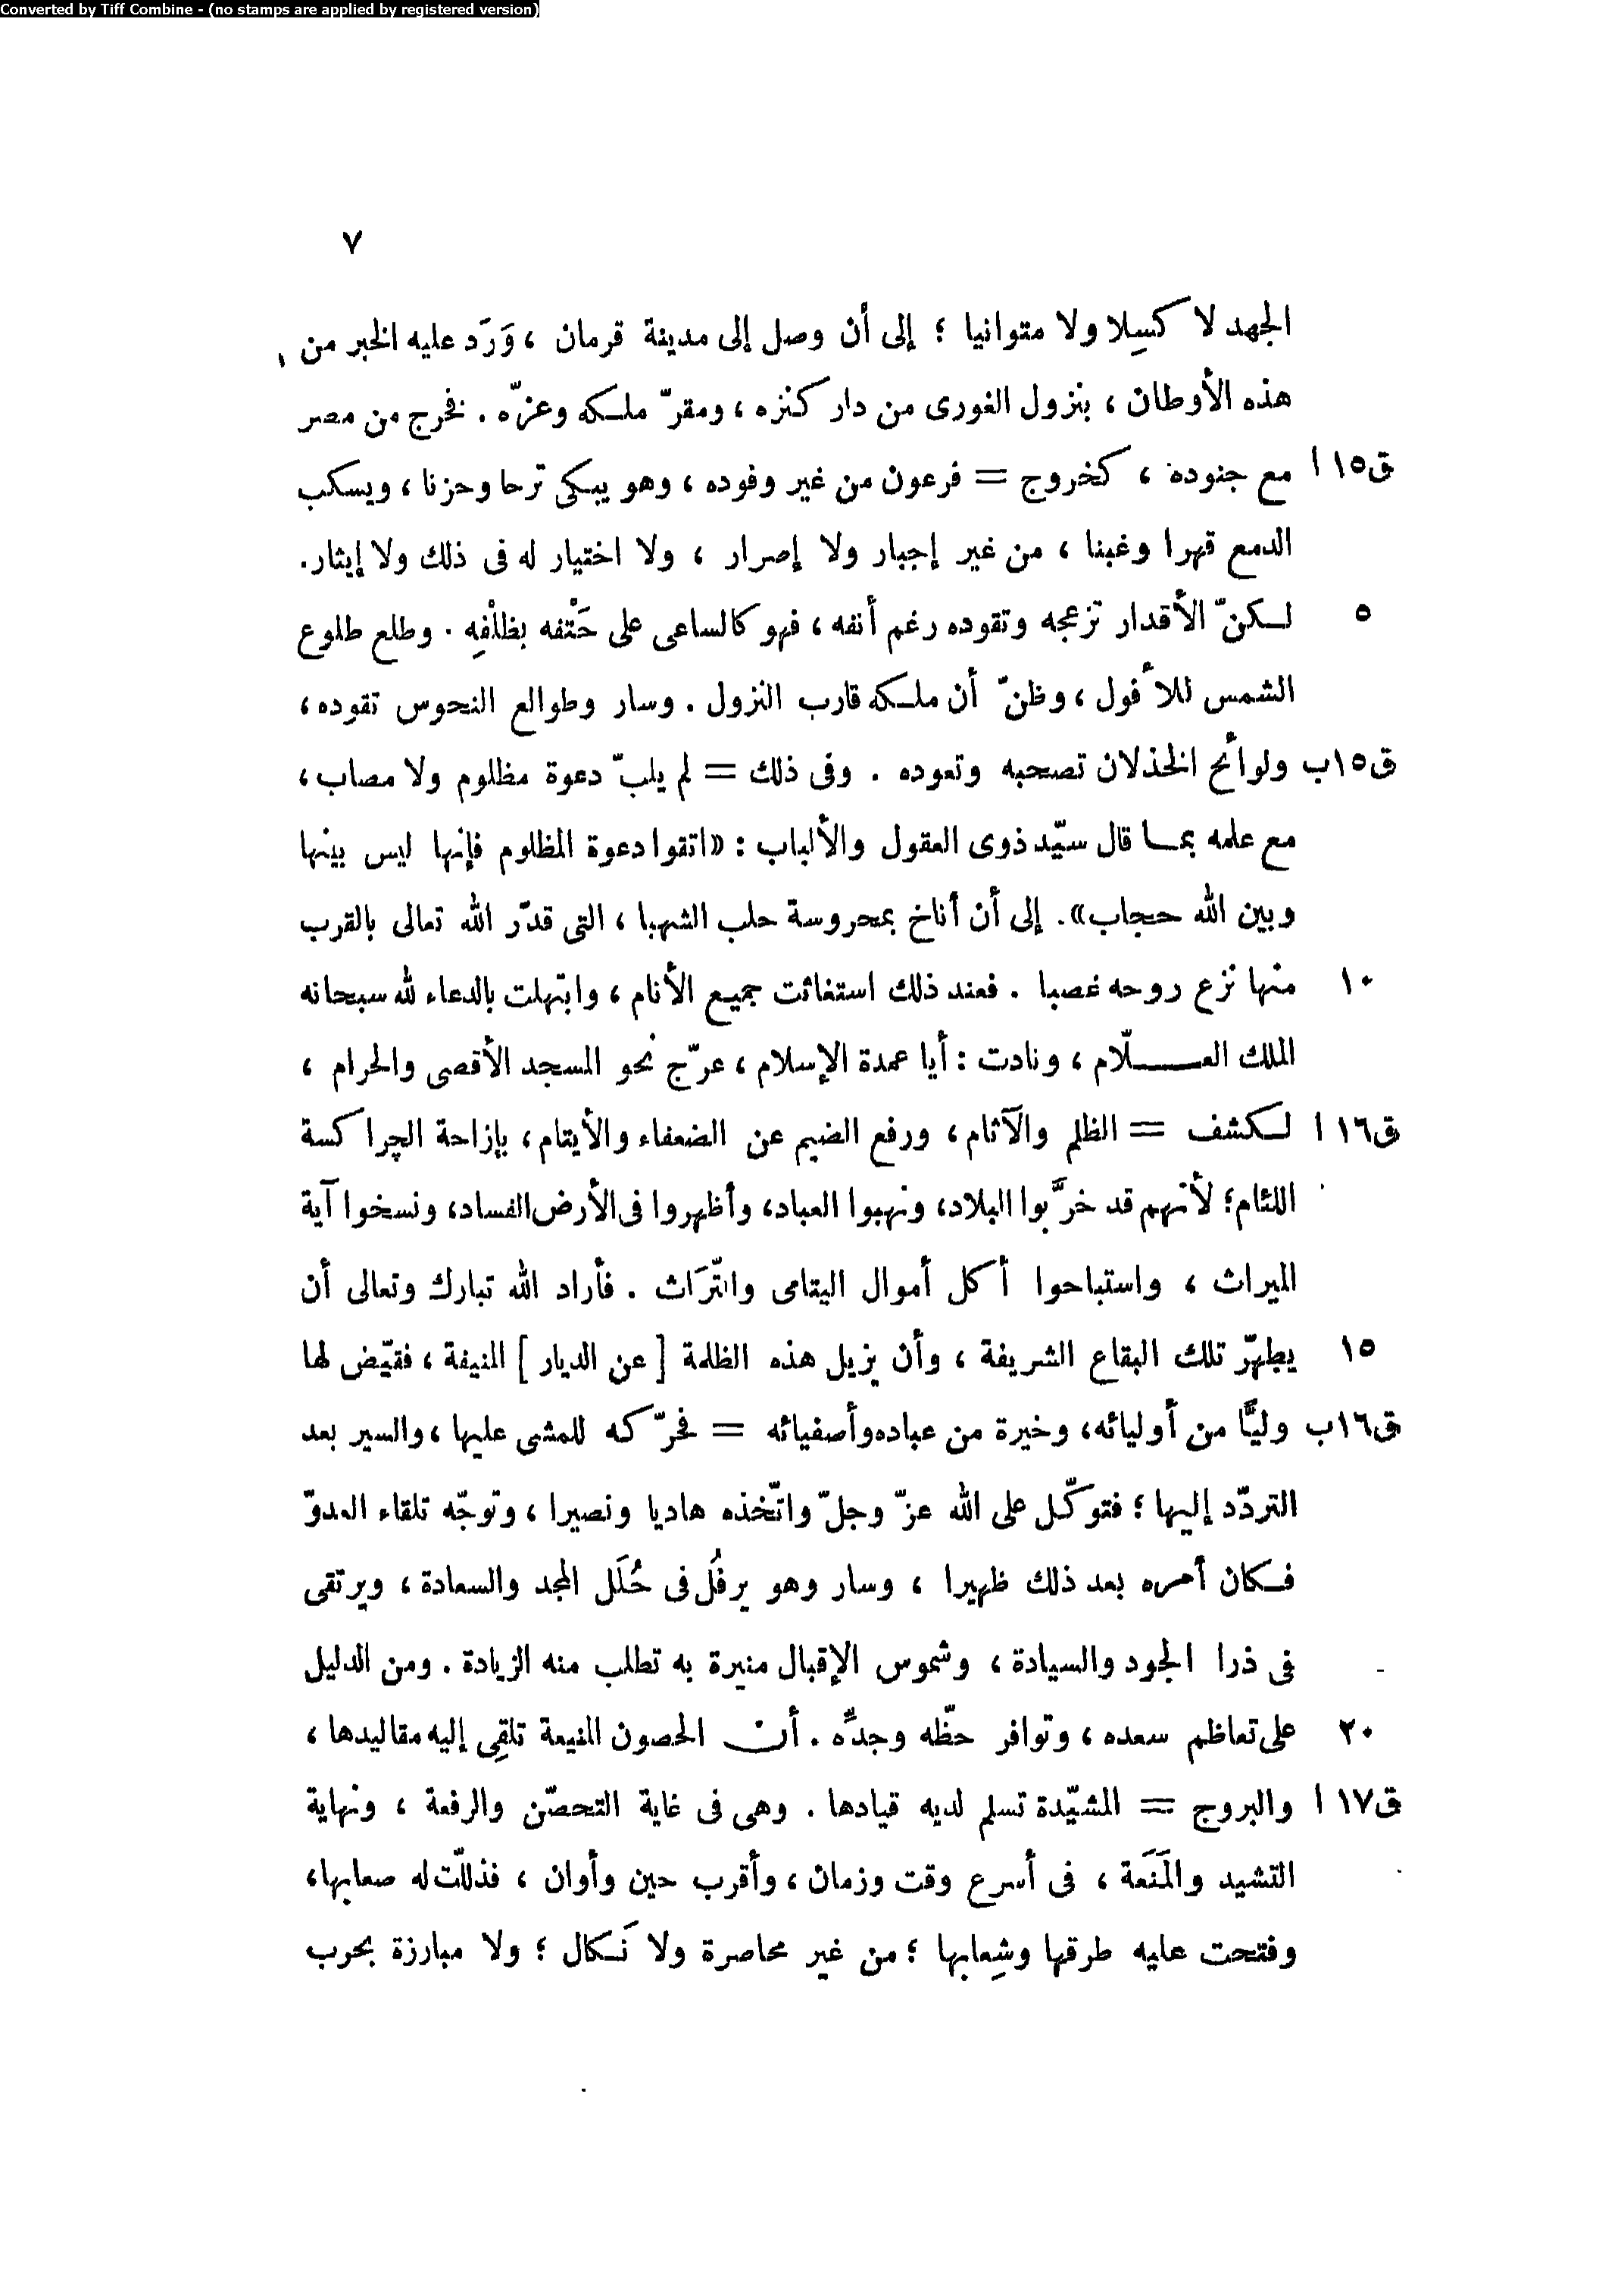 Converted by Tiff Combine - (no stamps are applied by registered version)
٧
الجهد لا كسِلا ولا متوانيا ؛ إلى أن وصل إلى مدينة قرمان ، وَرَد عليه الخبر من
هذه الأوطان ، بنزول الغورى من دار كنزه ، ومقرّ ملكه وعزّه . فخرج من مصر
ق١٥ ا مع جنوده ، كخروج = فرعون من غير وفوده ، وهو يبكى ترحا وحزنا ، ويسكب
الدمع قهرا وغبنا ، من غير إجبار ولا إصرار ، ولا اختيار له فى ذلك ولا إيثار.
٥ لكنّ الأقدار تزعجه وتقوده رغم أنفه ، فهو كالساعى على حَتْفه بظلْفِه . وطلع طلوع
الشمس للأفول ، وظنّ أن ملكه قارب النزول . وسار وطوالع النحوس تقوده ،
ق١٥ب ولوائح الخذلان تصحبه وتعوده . وفى ذلك = لم يلبّ دعوة مظلوم ولا مصاب ،
مع علمه بما قال سيّد ذوى العقول والألباب : «اتقوا دعوة المظلوم فإنها ليس بينها
وبين الله حجاب». إلى أن أناخ بمحروسة حلب الشهبا ، التى قدّر الله تعالى بالقرب
١٠ منها نزع روحه غصبا . فعند ذلك استغاثت جميع الأنام ، وابتهلت بالدعاء لله سبحانه
الملك العلّام ، ونادت : أيا عمدة الإسلام ، عرّج نحو المسجد الأقصى والحرام ،
ق١٦ ا لكشف = الظلم والآثام ، ورفع الضيم عن الضعفاء والأيتام ، بإزاحة الچراكسة
اللئام ؛ لأنهم قد خرَّبوا البلاد، ونهبوا العباد، وأظهروا فى الأرض الفساد، ونسخوا آية
الميراث ، واستباحوا أكل أموال اليتامى والتّرَاث . فأراد الله تبارك وتعالى أن
١٥ يطهّر تلك البقاع الشريفة ، وأن يزيل هذه الظلمة [ عن الديار ] المنيفة ، فقيّض لها
ق١٦ب وليًّا من أوليائه، وخيرة من عباده وأصفيائه = فحرّكه للمشى عليها ، والسير بعد
التردّد إليها ؛ فتوكّل على الله عزّ وجلّ واتّخذه هاديا ونصيرا ، وتوجّه تلقاء العدوّ
فكان أمره بعد ذلك ظهيرا ، وسار وهو يرفُل فى حُلَل المجد والسعادة ، ويرتقى
فى ذرا الجود والسيادة ، وشموس الإقبال منيرة به تطلب منه الزيادة . ومن الدليل
٢٠ على تعاظم سعده ، وتوافر حظّه وجدِّه . أن الحصون المنيعة تلقِى إليه مقاليدها ،
ق١٧ ا والبروج = المشيّدة تسلم لديه قيادها . وهى فى غاية التحصّن والرفعة ، ونهاية
التشيد والمَنَعَة ، فى أسرع وقت وزمان ، وأقرب حين وأوان ، فذللّت له صعابها،
وفتحت عليه طرقها وشِعابها ؛ من غير محاصرة ولا نَكال ؛ ولا مبارزة بحرب